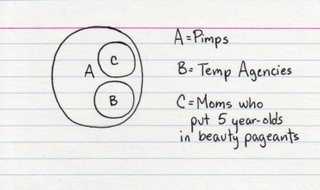 A = Pimps
C
A
B = Temp Agencies
B
C = Moms who
put 5 year-olds
in beauty pageants